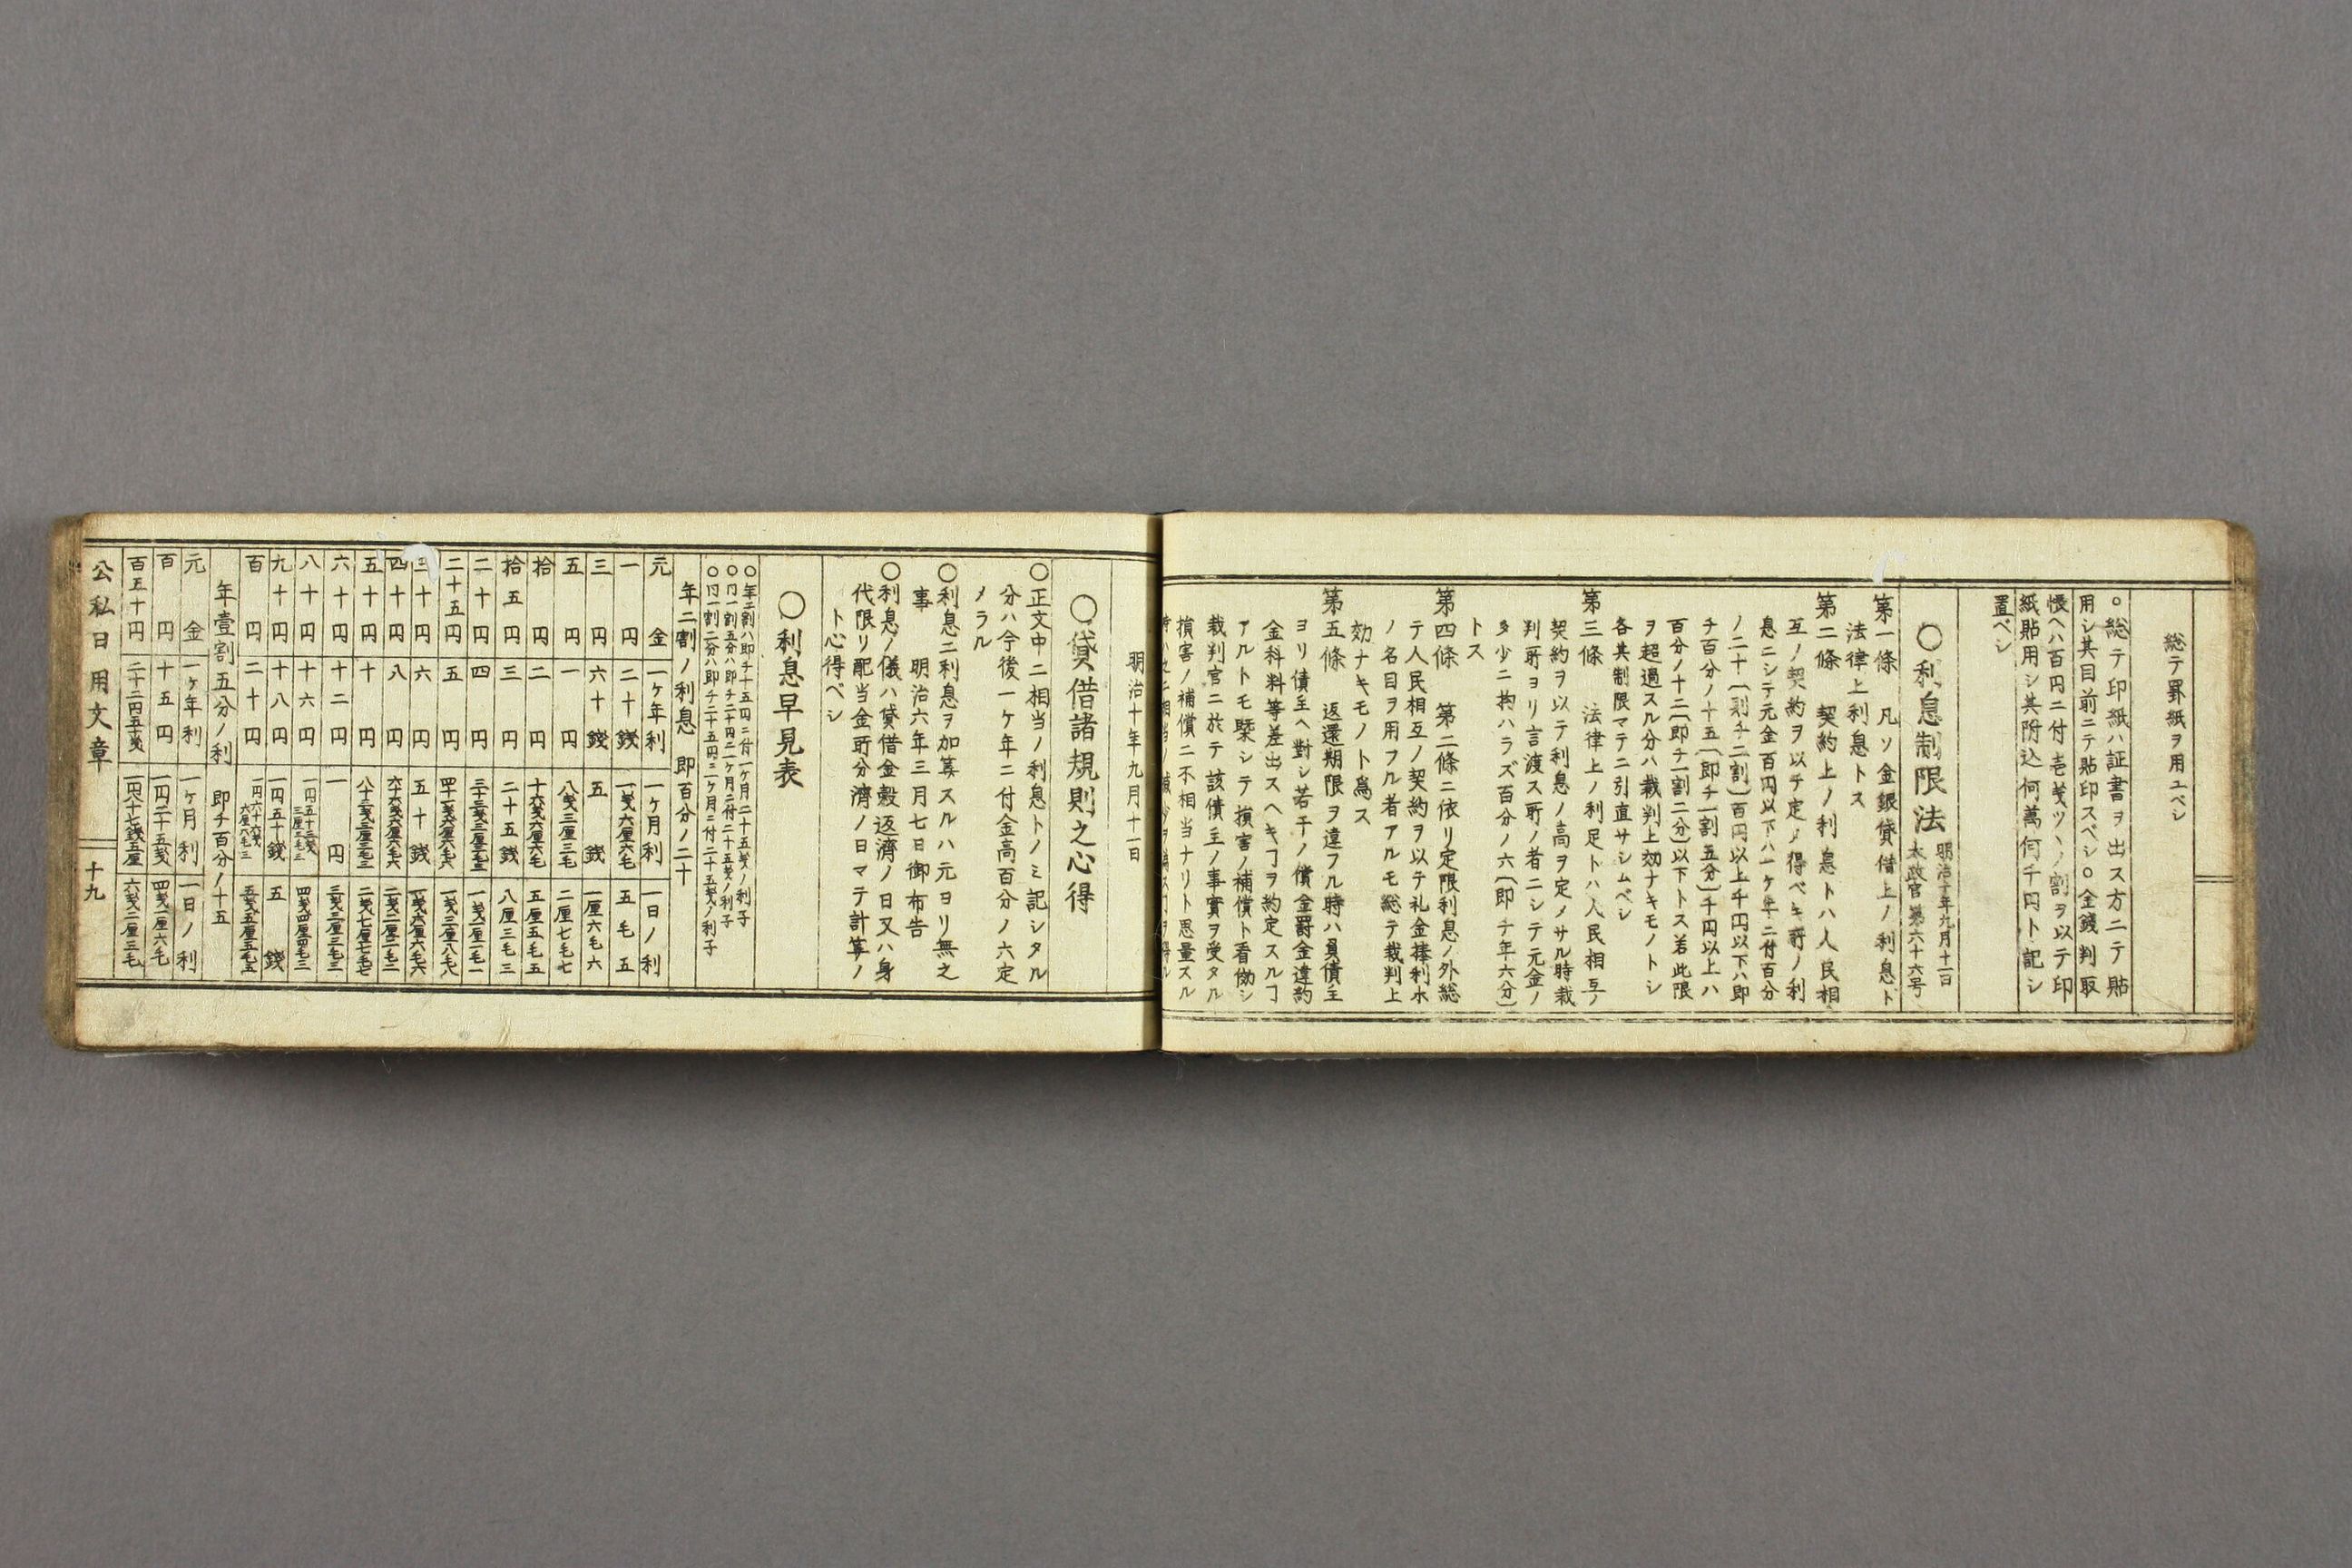 総テ罫紙ヲ用ユベシ
○総テ印紙ハ証書ヲ出ス方ニテ貼
用シ其目前ニテ貼印スベシ○金銭判取
帳ヘハ百円ニ付壱戔ツヽノ割ヲ以テ印
紙貼用シ其附込何萬何千円ト記シ
置ベシ
○利息制限法 明治十年九月十一日
太政官第六十六号
第一條 凡ソ金銀貸借上ノ利息ト
法律上利息トス
第二條 契約上ノ利息トハ人民相
互ノ契約ヲ以チ定メ得ベキ所ノ利
息ニシテ元金百円以下ハ一ケ年ニ付百分
ノ二十(則チ二割)百円以上千円以下ハ即
チ百分ノ十五(即チ一割五分)千円以上ハ
百分ノ十二(即チ一割二分)以下トス若此限
ヲ超過スル分ハ裁判上効ナキモノトシ
各其制限マテニ引直サシムベシ
第三條 法律上ノ利足トハ人民相互ノ
契約ヲ以テ利息ノ高ヲ定メサル時裁
判所ヨリ言渡ス所ノ者ニシテ元金ノ
多少ニ拘ハラズ百分ノ六(即チ年六分)
トス
第四條 第二條ニ依リ定限利息ノ外総
テ人民相互ノ契約ヲ以テ礼金棒利水
ノ名目ヲ用フル者アルモ総テ裁判上
効ナキモノト為ス
第五條 返還期限ヲ違フル時ハ負債主
ヨリ債主ヘ對シ若干ノ償金罰金違約
金科料等差出スヘキヿヲ約定スルヿ
アルトモ槩シテ損害ノ補償ト看做シ
裁判官ニ於テ該債主ノ事實ヲ受タル
損害ノ補償ニ不相当ナリト思量スル
明治十年九月十一日
○貸借諸規則之心得
○正文中ニ相当ノ利息トノミ記シタル
分ハ今後一ケ年ニ付金高百分ノ六定
メラル
○利息ニ利息ヲ加筭スルハ元ヨリ無之
事 明治六年三月七日御布告
○利息ノ儀ハ貸借金穀返濟ノ日又ハ身
代限リ配当金所分濟ノ日マテ計筭ノ
ト心得ベシ
○利息早見表
○年二割ハ即チ十五円ニ付一ケ月二十五戔ノ利子
○〃一割五分ハ即チ二十円ニ一ケ月ニ付二十五戔ノ利子
○〃一割二分ハ即チ二十五円ニ一ケ月ニ付二十五戔ノ利子
年二割ノ利息 即百分ノ二十
元金 一ヶ年利 一ヶ月利 一日ノ利
一円 二十銭 一戔六厘六毛 五毛五
三円 六十銭 五銭 一厘六毛六
五円 一円 八戔三厘三毛 二厘七毛七
拾円 二円 十六戔六厘六毛 五厘五毛五
拾五円 三円 二十五銭 八厘三毛三
二十円 四円 三十三戔三厘三毛三 一戔一厘一毛一
二十五円 五円 四十一戔六厘六毛六 一戔三厘八毛八
三十円 六円 五十銭 一戔六厘六毛六
四十円 八円 六十六戔六厘六毛六 二戔二厘二毛二
五十円 十円 八十三戔三厘三毛三 二戔七厘七毛七
六十円 十二円 一円 三戔三厘三毛三
八十円 十六円 一円三十三戔三厘三毛三 四戔四厘四毛四
九十円 十八円 一円五十銭 五銭
百円 二十円 一円六十六戔六厘六毛三 五戔五厘五毛五
年壹割五分ノ利 即チ百分ノ十五
元金 一ヶ年利 一ヶ月利 一日ノ利
百円 十五円 一円二十五戔 四戔一厘六毛
百五十円 二十二円五十戔 一円八十七銭五厘 六戔二厘三毛
公私日用文章 十九